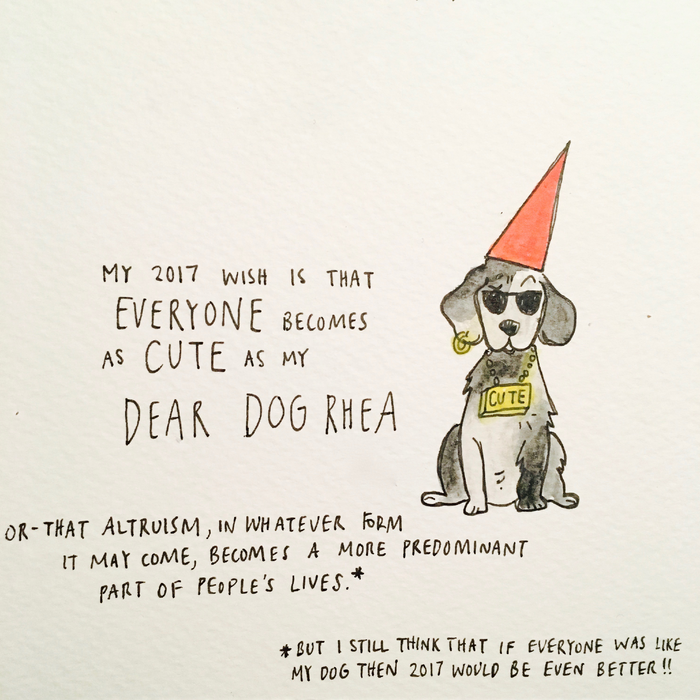 MY 2017 WISH IS THAT
EVERYONE BECOMES
AS CUTE AS MY
DEAR DOG RHEA
CUTE
OR-THAT ALTRUISM, IN WHATEVER FORM
IT MAY COME, BECOMES A MORE PREDOMINANT
PART OF PEOPLE'S LIVES.*
*BUT I STILL THINK THAT IF EVERYONE WAS LIKE
MY DOG THEN 2017 WOULD BE EVEN BETTER!!